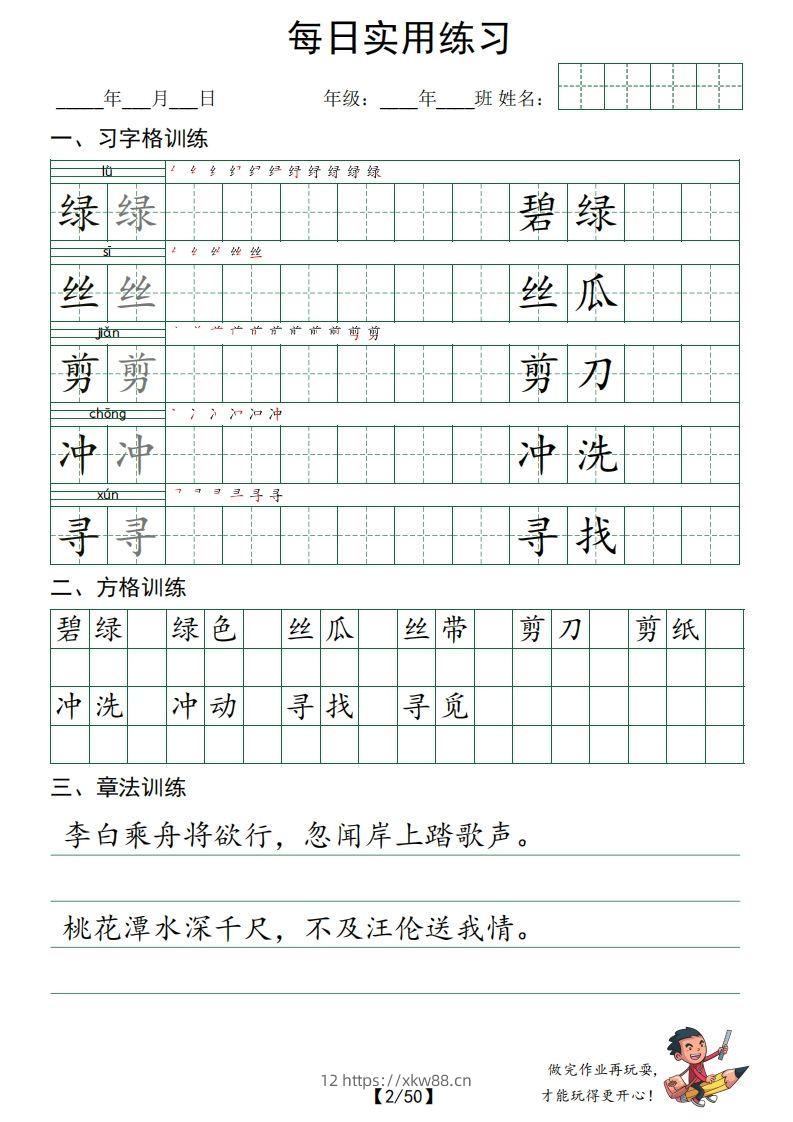 每日实用练习
_____年___月___日 年级：____年____班 姓名：
一、习字格训练
lǜ
绿 绿 碧 绿
sī
丝 丝 丝 瓜
jiǎn
剪 剪 剪 刀
chōng
冲 冲 冲 洗
xún
寻 寻 寻 找
二、方格训练
碧 绿 绿 色 丝 瓜 丝 带 剪 刀 剪 纸
冲 洗 冲 动 寻 找 寻 觅
三、章法训练
李白乘舟将欲行，忽闻岸上踏歌声。
桃花潭水深千尺，不及汪伦送我情。
做完作业再玩耍，
才能玩得更开心！
12 https://xkw88.cn
【2/50】